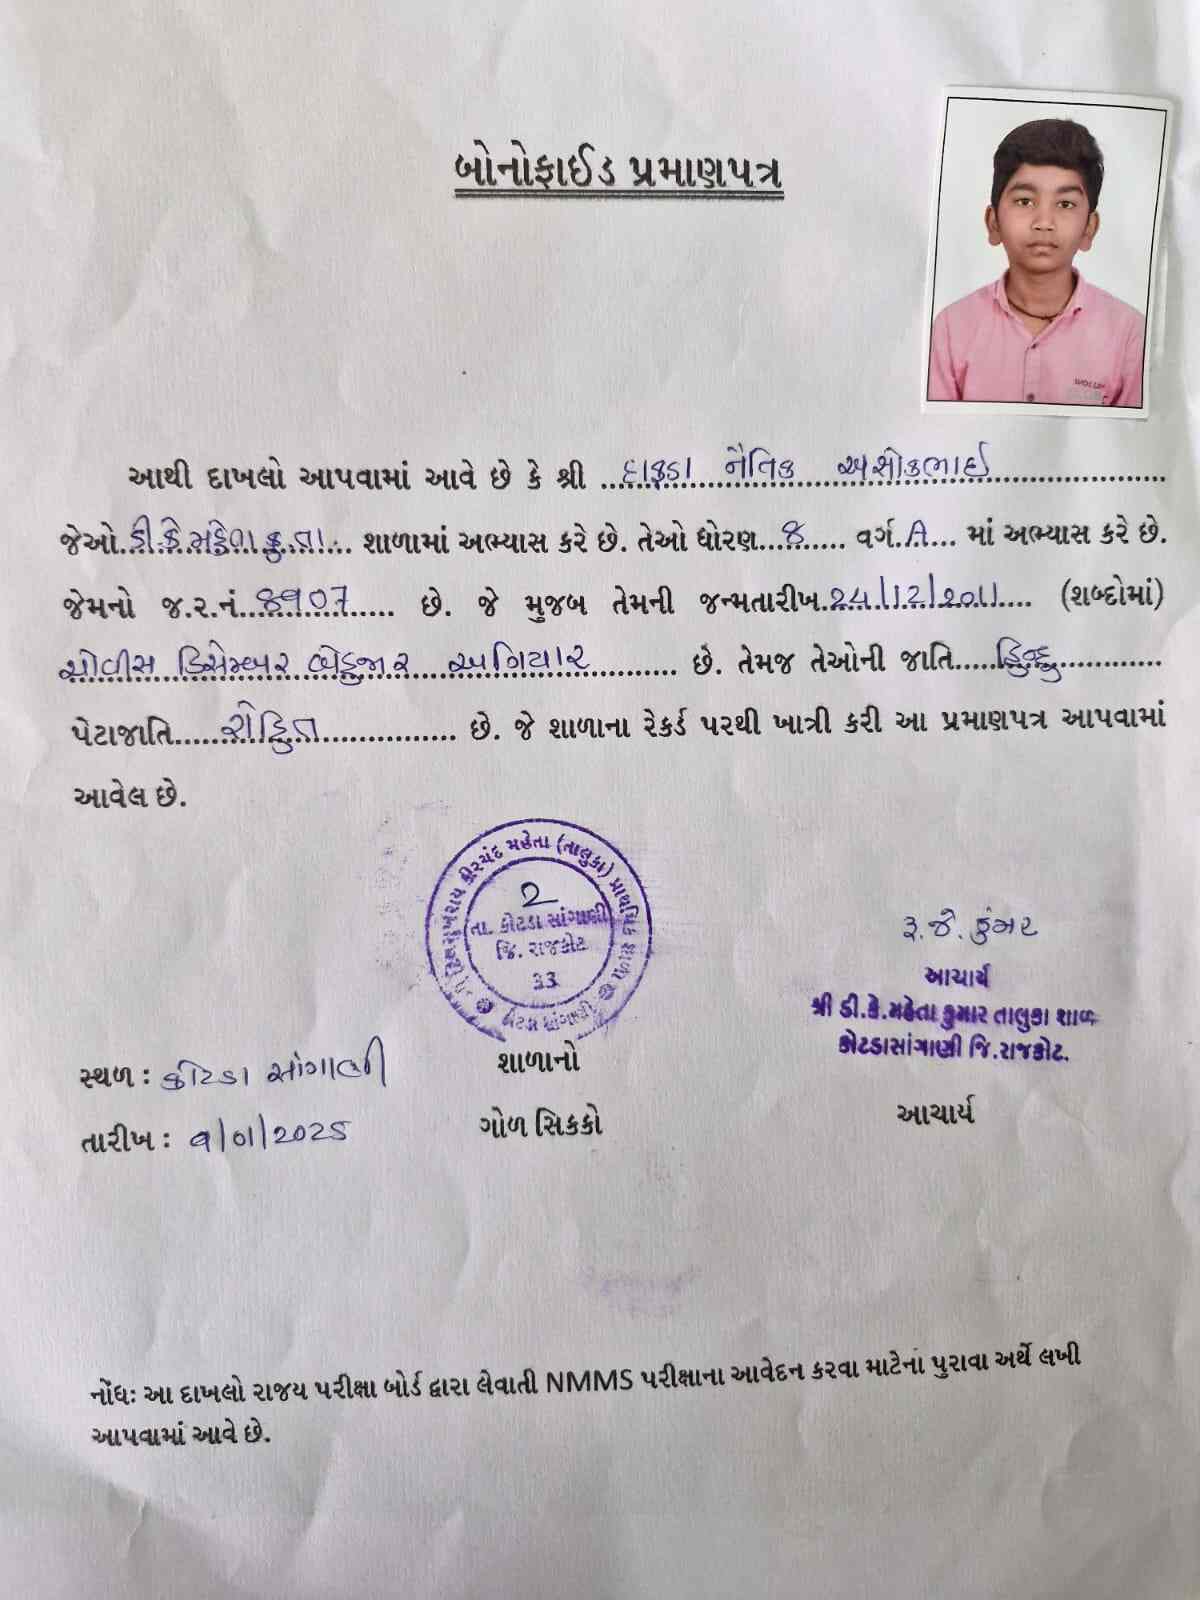 બોનોફાઈડ પ્રમાણપત્ર
આથી દાખલો આપવામાં આવે છે કે શ્રી ...દાફડા નૈતિક અશોકભાઈ...
જેઓ..ડી.કે મહેતા કુ.તા... શાળામાં અભ્યાસ કરે છે. તેઓ ધોરણ...૪..... વર્ગ..A... માં અભ્યાસ કરે છે.
જેમનો જ.ર.નં...૪૧07...... છે. જે મુજબ તેમની જન્મતારીખ..24/12/2011.... (શબ્દોમાં)
ચોવીસ ડિસેમ્બર બેહજાર અગિયાર ......... છે. તેમજ તેઓની જાતિ.....હિન્દુ............
પેટાજાતિ......રોહિત............... છે. જે શાળાના રેકર્ડ પરથી ખાત્રી કરી આ પ્રમાણપત્ર આપવામાં
આવેલ છે.
કીરચંદ મહેતા (તાલુકા) પ્રાથમિક શાળા
2
તા. કોટડા સાંગાણી
જિ. રાજકોટ
૩૩
કોટડા સાંગાણી
આચાર્ય
શ્રી ડી.કે.મહેતા કુમાર તાલુકા શાળ
કોટડાસાંગાણી જિ.રાજકોટ.
સ્થળ : કોટડા સાંગાણી
શાળાનો
તારીખ : ૧/01/2025
ગોળ સિકકો
આચાર્ય
નોંધ: આ દાખલો રાજય પરીક્ષા બોર્ડ દ્વારા લેવાતી NMMS પરીક્ષાના આવેદન કરવા માટેના પુરાવા અર્થે લખી
આપવામાં આવે છે.